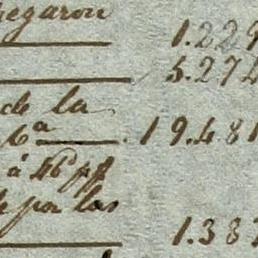 negaron
1.229
5.274
de la
6ª 19.481
á 46 pf
de por las
1.387